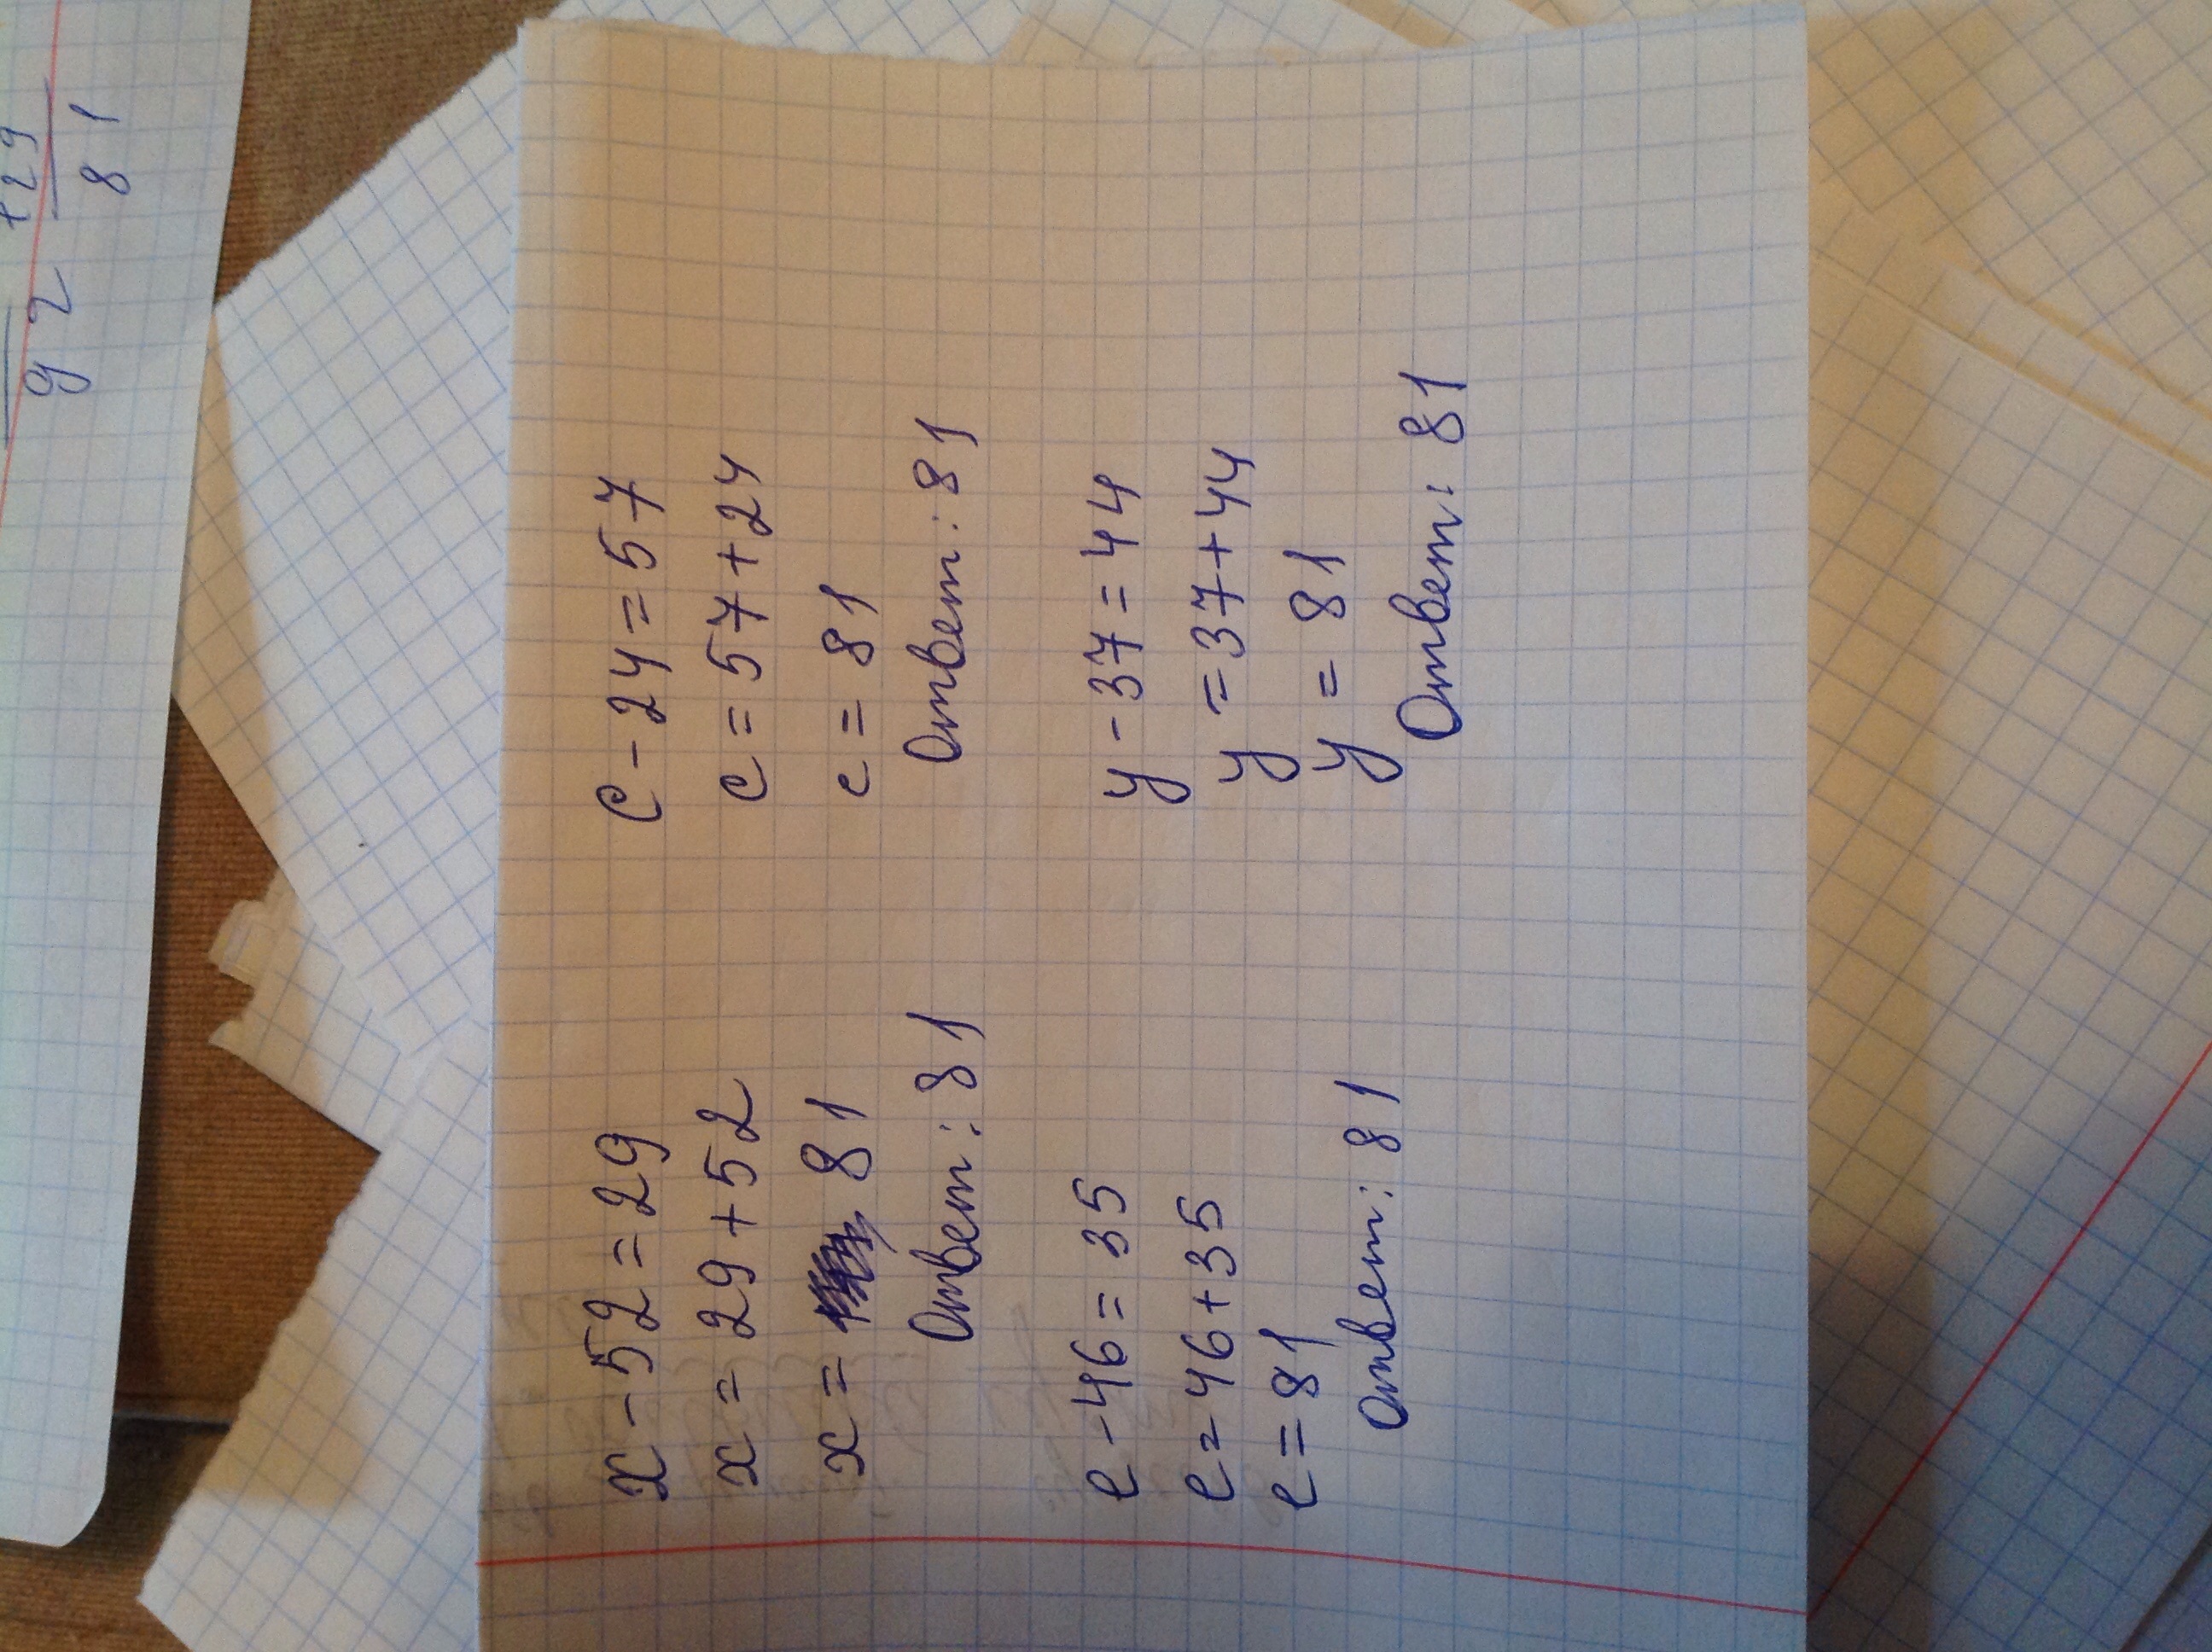 x - 52 = 29
x = 29 + 52
x = 81
Ответ: 81
c - 24 = 57
c = 57 + 24
c = 81
Ответ: 81
e - 46 = 35
e = 46 + 35
e = 81
Ответ: 81
y - 37 = 44
y = 37 + 44
y = 81
Ответ: 81
+29
81
92